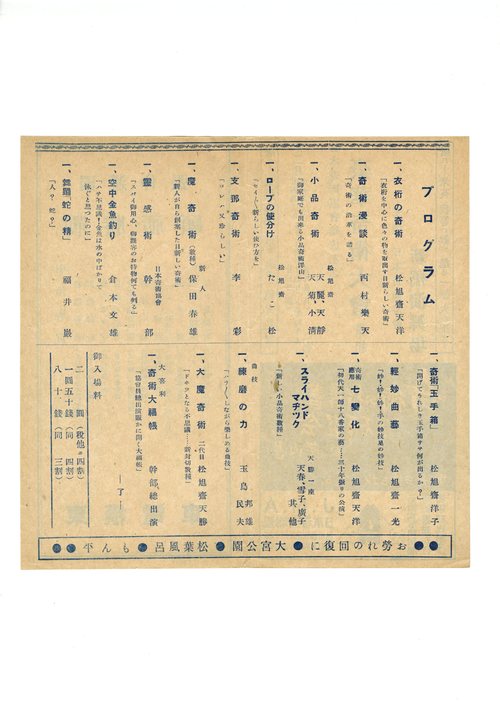 プログラム
一、衣桁の奇術 松旭齋天洋
「衣桁を中心に色々の物を取出す目新らしい奇術」
一、奇術漫談 西村樂天
「奇術の沿革を語る」
一、小品奇術 松旭齋 天麗、天靜 天菊、小清
「御家庭でも出來る小品奇術澤山」
一、ロープの使分け 松旭齋 たこ松
一、支那奇術 李彩
「コレハ又珍らしい」
一、魔奇術(數種) 新人 保田春雄
「新人が自ら創案した目新しい奇術」
一、靈感術 日本奇術協會 幹部
「スパイ御用心、御觀客のお持物何でも判る」
一、空中金魚釣り 倉本文雄
「ハテ不思議!金魚は水の中ばかりで
泳ぐと思つたのに」
一、舞踊蛇の精 福井巖
「人?蛇?」
一、奇術「玉手箱」 松旭齋洋子
「開けて今れしき玉手箱サテ何が出るか?」
一、輕妙曲藝 松旭齋一光
「妙!妙!妙!手の妙技足の妙技」
一、奇術應用 七變化 松旭齋天洋
「初代天一師十八番家の藝…三十年振りの公演」
一、スライハンドマヂツク 天勝一座 天春、雪子、廣子 其他
「新しい小品奇術數種」
一、練磨の力 曲技 玉島 邦雄 民夫
「ハラハラしながら樂しめる曲技」
一、大魔奇術 二代目 松旭齋天勝
「ドキツとなる不思議……新封切數種」
一、奇術大福帳 大喜利 幹部總出演
「協會員總出演賑かに開く大福帳」
―了―
御入場料
二圓(税他 四割)
一圓五十錢(同 四割)
八十錢(同 三割)
●●お勞れの回復に●大宮公園●松葉風呂●もん平●●